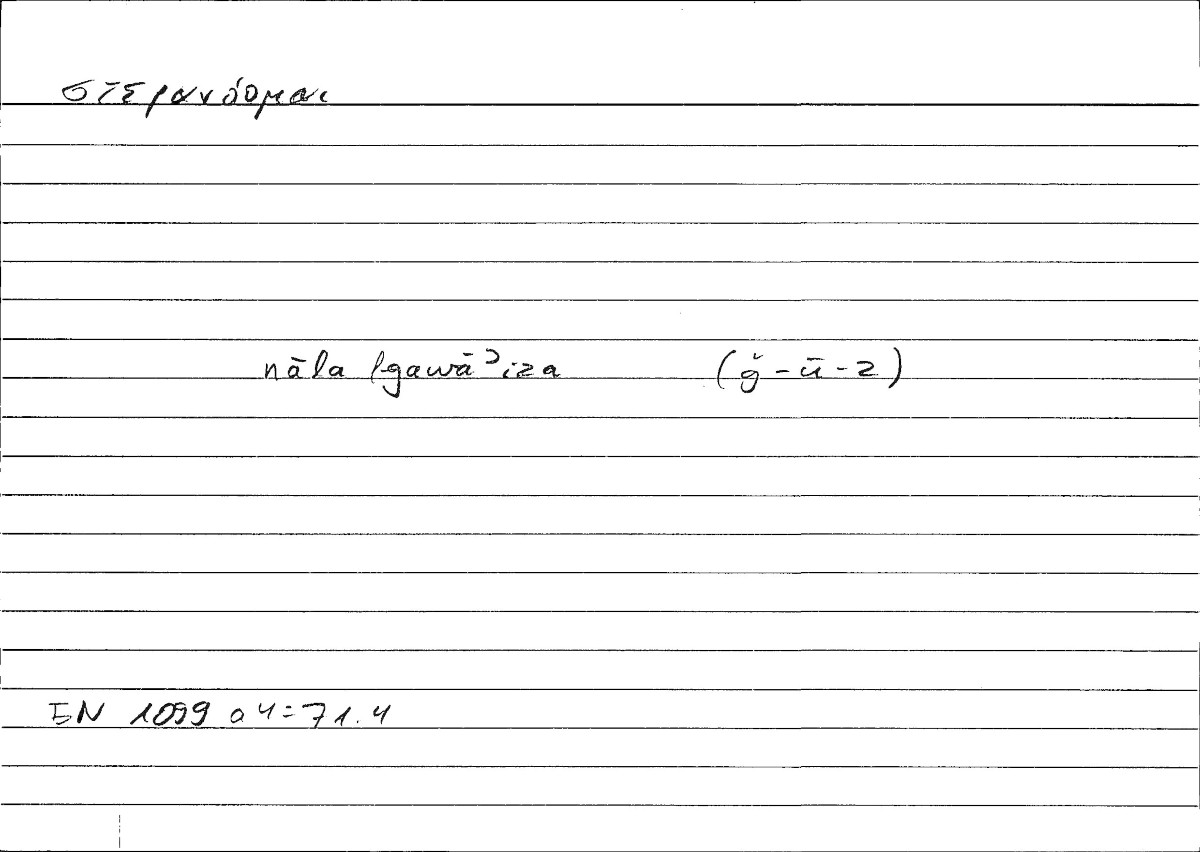 στερανόομαι
nāla lgawāʾiza (ǧ-ū-z)
EN 1099 a 4 = 71.4